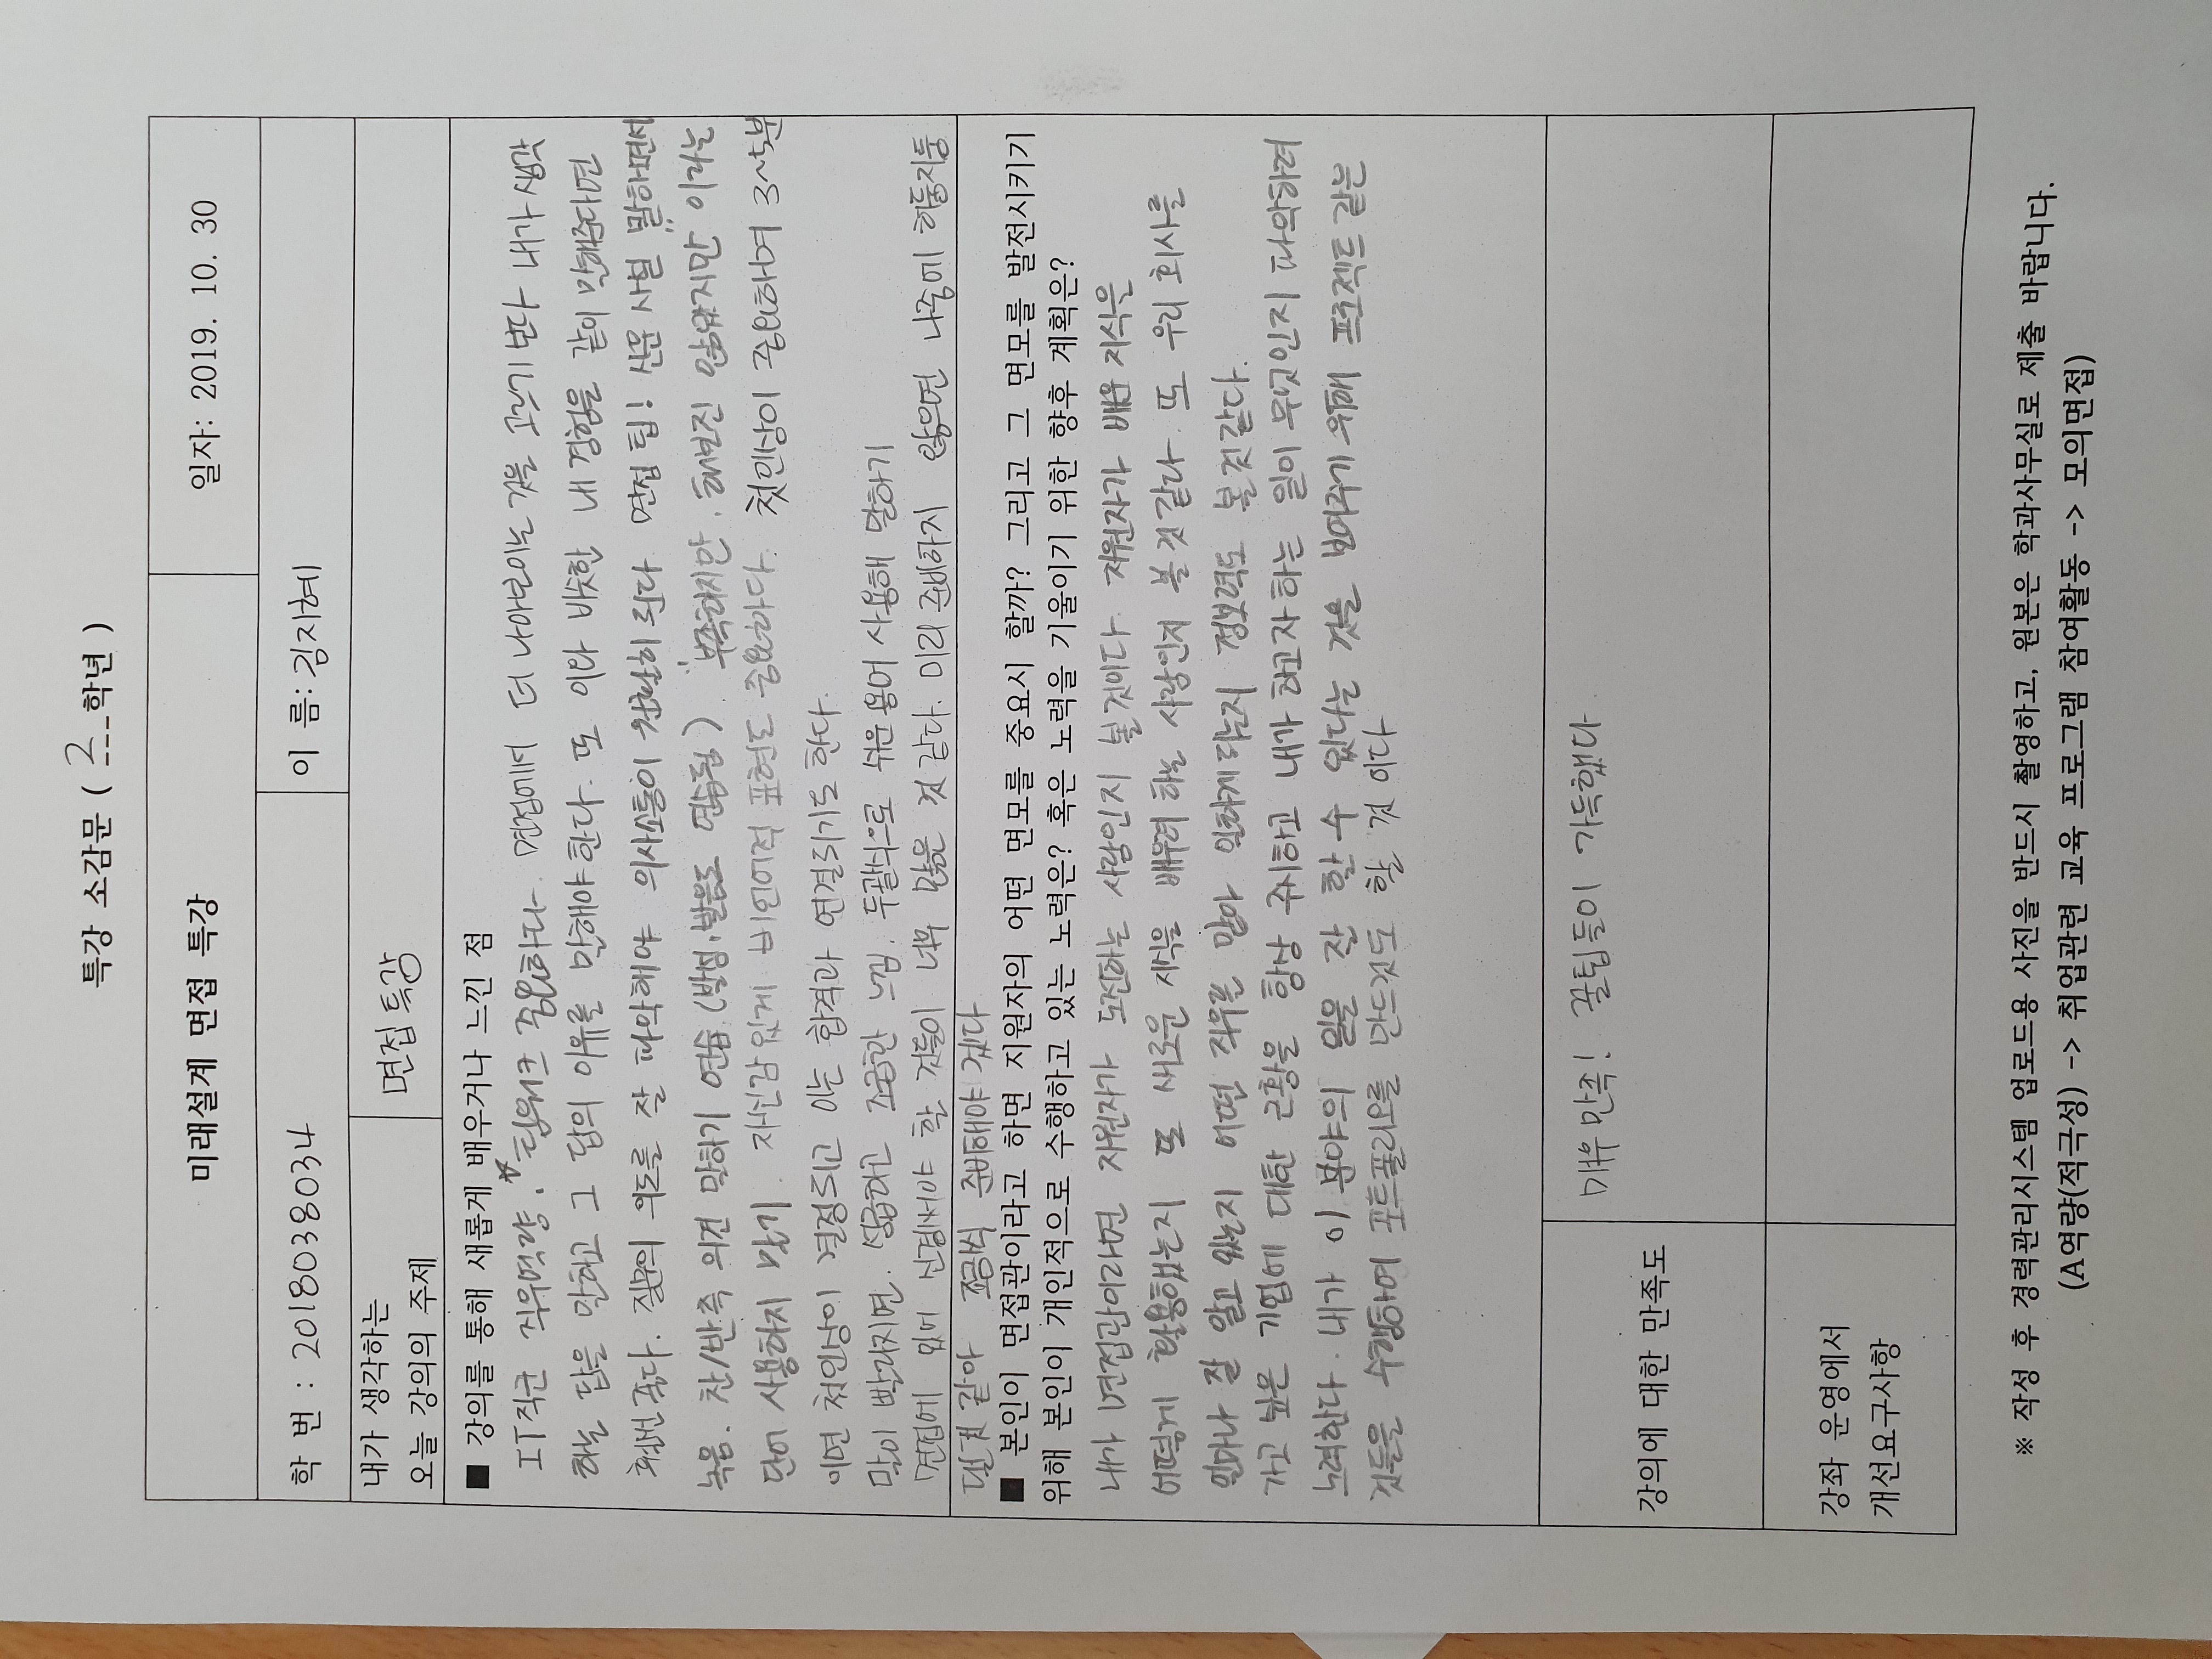 특강 소감문 ( 2 학년 )
미래설계 면접 특강
일자: 2019. 10. 30
학 번 : 2018038034
이 름: 김지혜
내가 생각하는
오늘 강의의 주제
면접 특강
■ 강의를 통해 새롭게 배우거나 느낀 점
IT직군 직무역량, ☆팀워크 중요하다. 면접에서 더 나아보이는 것을 고르기 보다 내가 생각
하는 답을 말하고 그 답의 이유를 말해야 한다. 또 이와 비슷한 내 경험을 같이 말해준다면
훨씬 좋다. 질문의 의도를 잘 파악해야 의사소통이 원활히 된다 면접 팁! 신문 사설 말하면서
녹음. 찬/반측 의견 말하기 연습 (발성, 발음도 연습됨). "부족하지만, 해보진 않았지만" 이라는
단어 사용하지 말기. 자신감있게 비언어적 표현도 중요하다. 첫인상이 중요하며 3~5분
이면 첫인상이 결정되고 이는 합격과 연결되기도 한다.
말이 빨라지면. 성급하고 조급한 느낌. 두괄식으로 쉬운 용어 사용해 말하기
면접에 있어 신경써야 할 것들이 너무 많은 것 같다. 미리 준비하지 않으면 나중에 허둥지둥
댈 것 같아 조금씩 준비해야 겠다
■ 본인이 면접관이라고 하면 지원자의 어떤 면모를 중요시 할까? 그리고 그 면모를 발전시키기
위해 본인이 개인적으로 수행하고 있는 노력은? 혹은 노력을 기울이기 위한 향후 계획은?
내가 면접관이라면 지원자가 도전하는 사람인지 볼 것이다. 지원자가 배운 지식을
어떻게 활용했는지 또 새로운 지식을 배우려 하는 사람인지 볼 것 같다. 또 우리 회사를
얼마나 잘 알고 있는지 어떤 직무를 맡아 일하게 되는지 정보력도 볼 것 같다.
가고 싶은 기업에 대한 근황을 항상 주시하고 내가 하고자 하는 일이 무엇인지 파악하려
노력한다. 내가 이 분야의 일을 잘 할 수 있다는 것을 보여주기 위해 프로젝트 같은
것들을 수행하여 포트폴리오를 만드것도 할 것 이다
강의에 대한 만족도
매우 만족! 꿀팁들이 가득했다
강좌 운영에서
개선요구사항
※ 작성 후 경력관리시스템 업로드용 사진을 반드시 촬영하고, 원본은 학과사무실로 제출 바랍니다.
(A역량(적극성) -> 취업관련 교육 프로그램 참여활동 -> 모의면접)